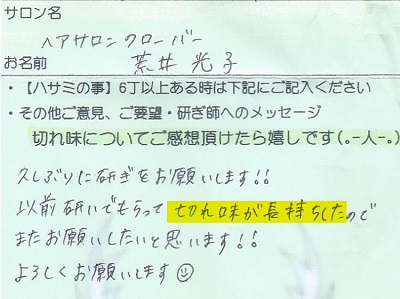 サロン名
ヘアサロンクローバー
お名前 荒井 光子
・【ハサミの事】6丁以上ある時は下記にご記入ください
・その他ご意見、ご要望・研ぎ師へのメッセージ
切れ味についてご感想頂けたら嬉しです(。-人-。)
久しぶりに研ぎをお願いします!!
以前研いでもらって切れ味が長持ちしたので
またお願いしたいと思います!!
よろしくお願いします☺